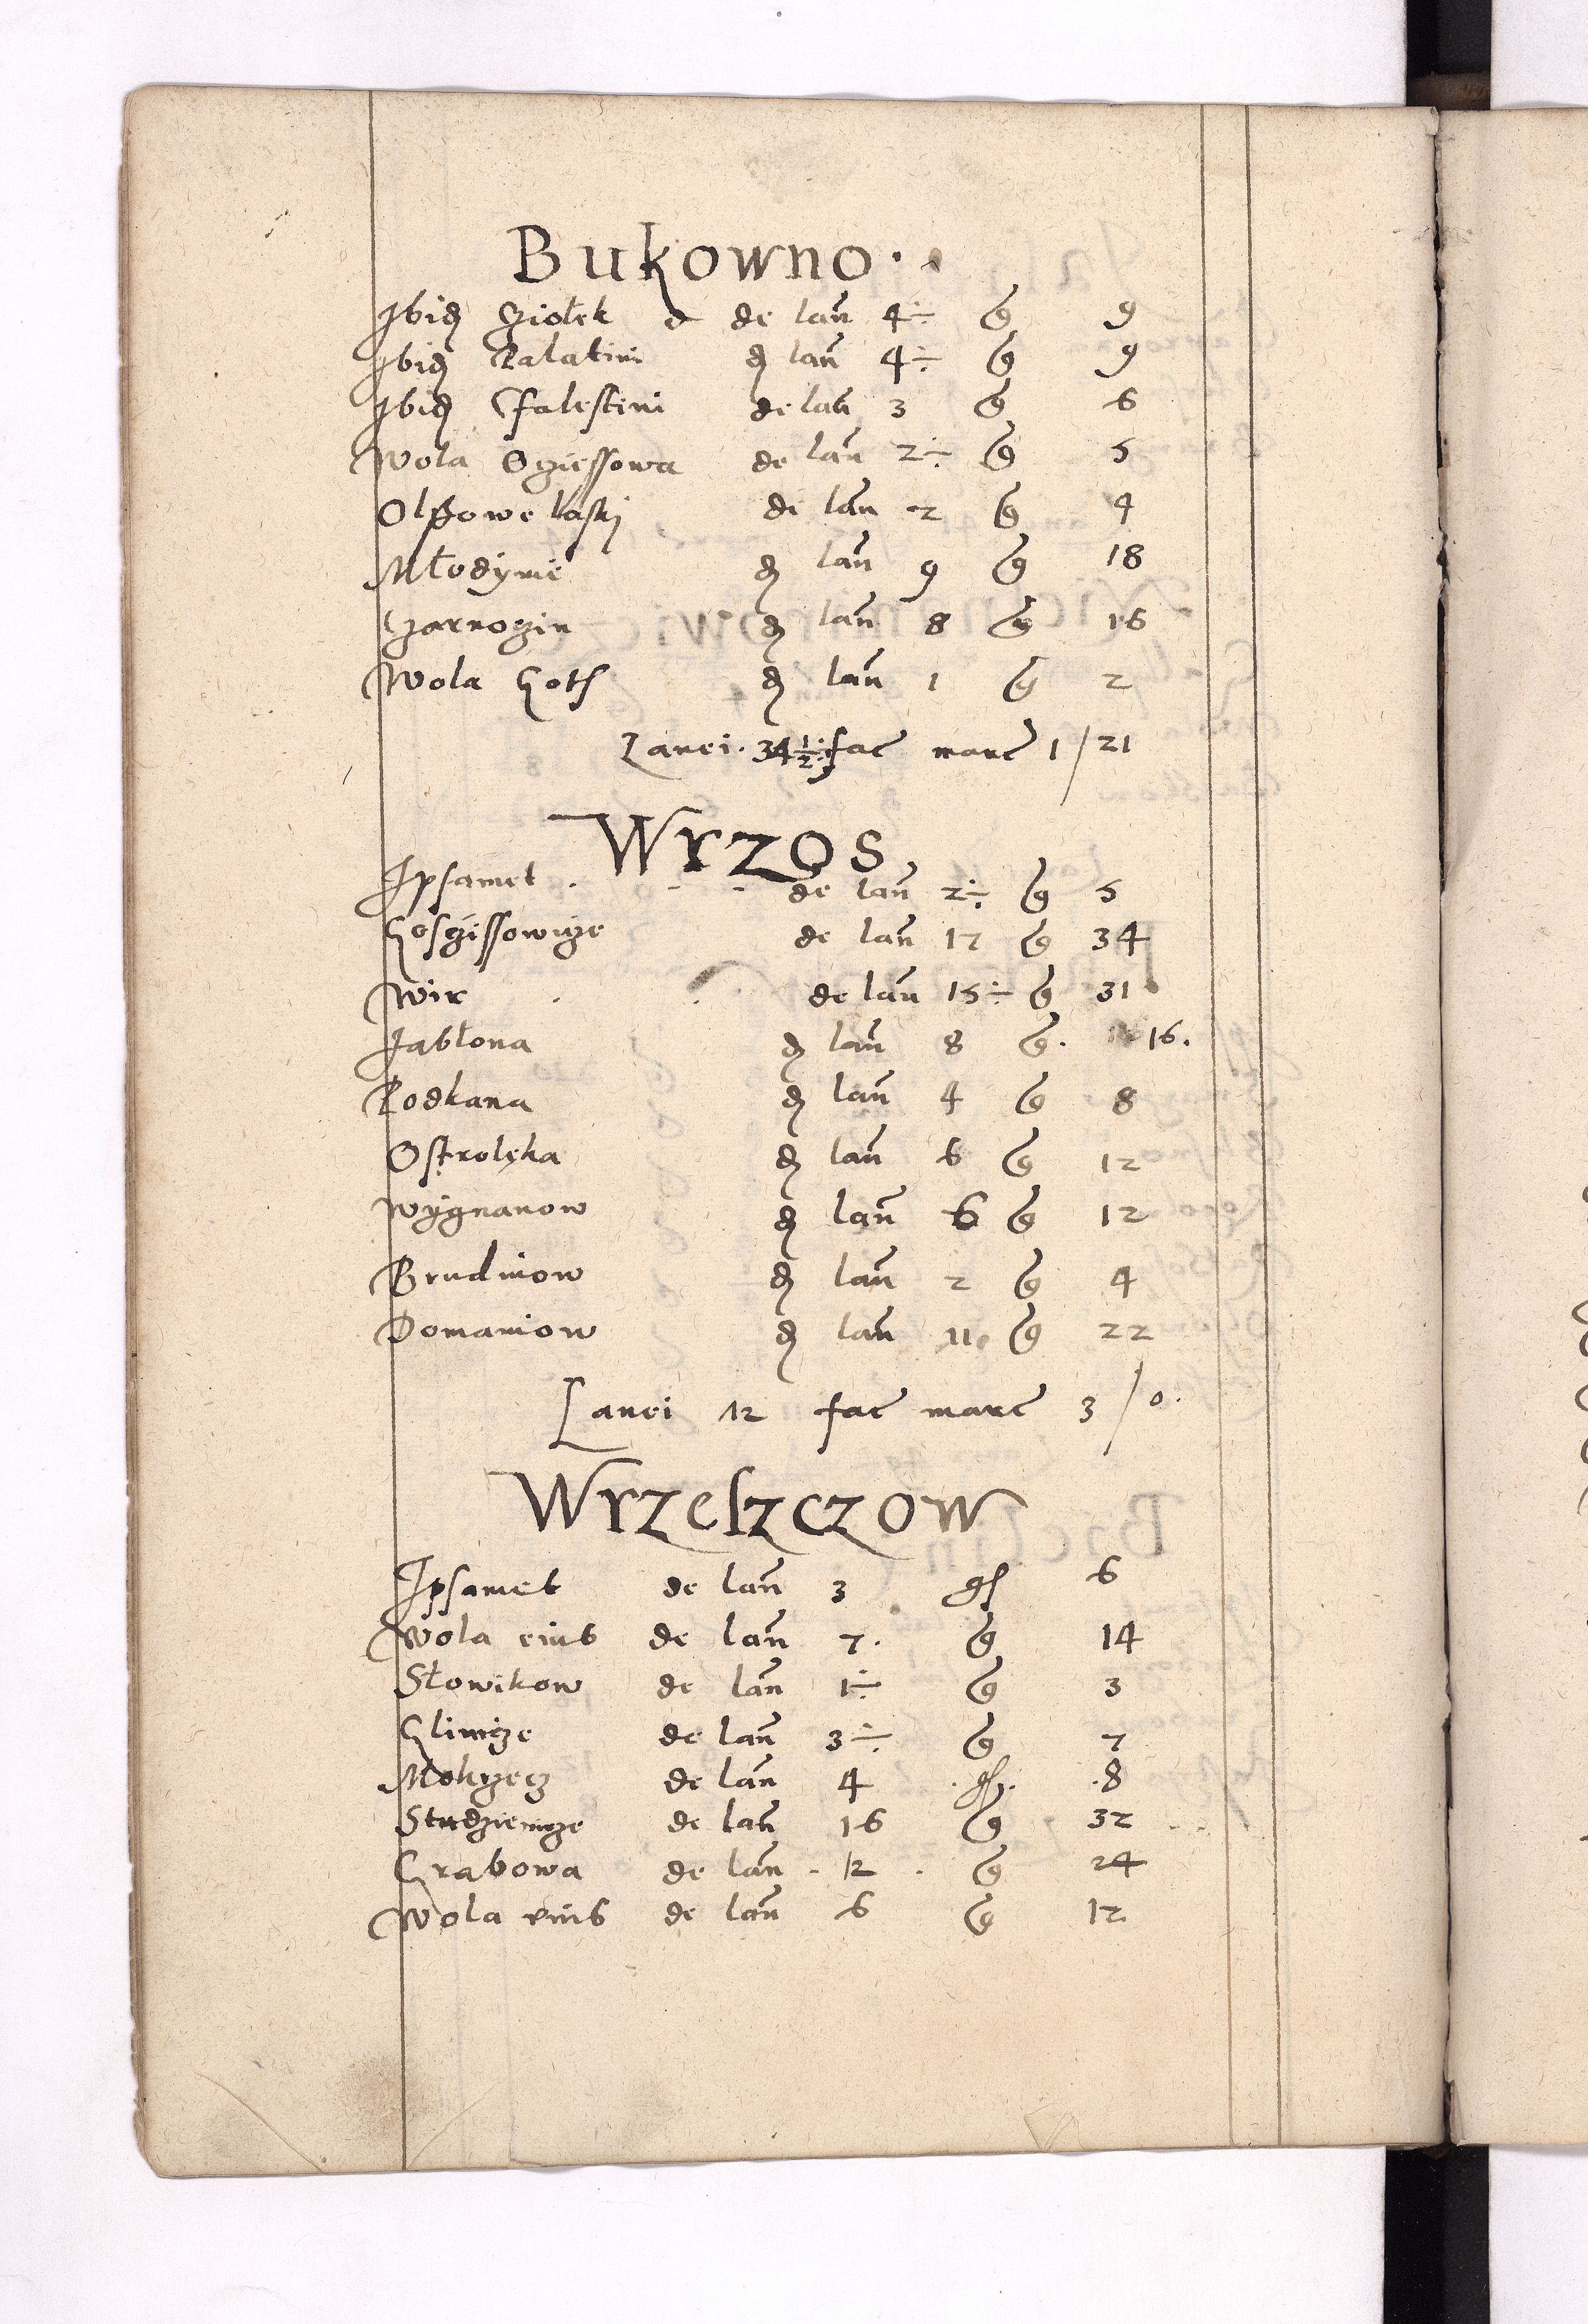 Bukowno.
Ibid Ziołek de lan 4÷ g 9
Ibid Palatini d lan 4÷ g 9
Ibid Falescini de lan 3 g 6
Wola Gziessowa de lan 2÷ g 5
Olszowe łaski de lan 2 g 4
Młodynie d lan 9 g 18
Czarnozin d lan 8 g 16
Wola Gots d lan 1 g 2
Lanei. 34 1/2 fac marc 1/21
Wrzos
Ipsamet . de lan 2÷ g 5
Goszissowicze de lan 17 g 34
Wir de lan 15÷ g 31
Jabłona d lan 8 g. 16.
Rodkana d lan 4 g 8
Ostrolęka d lan 6 g 12
Wygnanow d lan 6 g 12
Brudniow d lan 2 g 4
Domaniow d lan 11 g 22
Lanei 12 fac marc 3/0.
Wrzeszczow
Ipsamet de lan 3 gs 6
Wola eius de lan 7. g 14
Słowikow de lan 1÷ g 3
Glinicze de lan 3÷ g 7
Mokrzecz de lan 4 .gs. .8
Studzienicze de lan 16 g 32
Grabowa de lan . 12 . g 24
Wola eius de lan 6 g 12